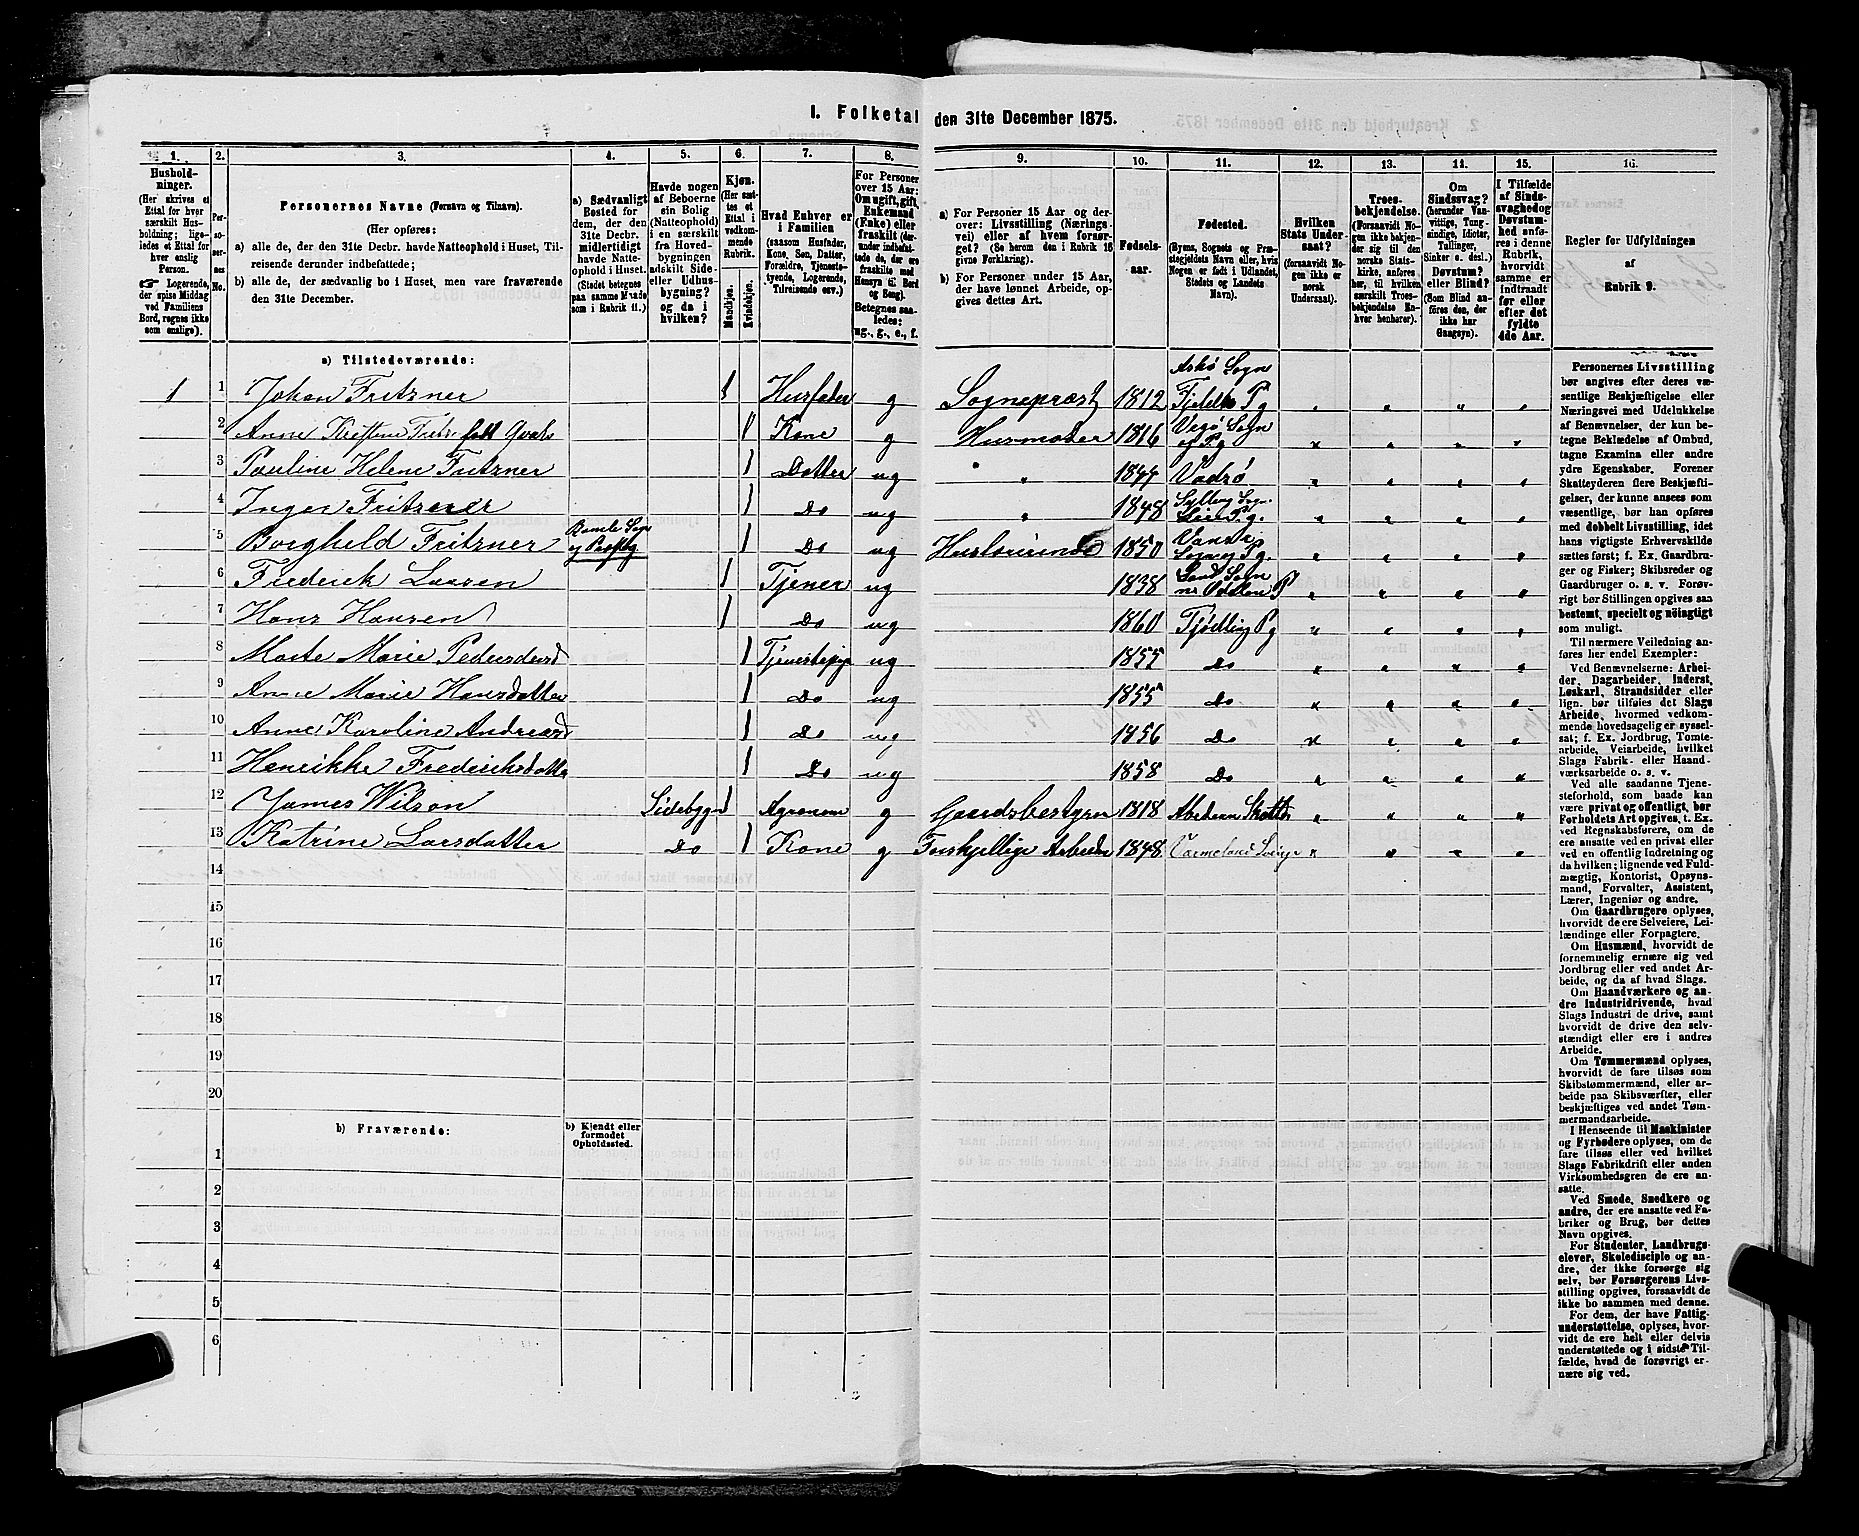 I. Folketal den 31te December 1875.
1. 2. 3. 4. 5. 6. 7. 8. 9. 10. 11. 12. 13. 14. 15. 16.
Husholdninger.
(Her skrives et
Ettal for hver
særskilt Husholdning;
ligeledes et Ettal for
hver enslig
Person.
☞ Logerende,
der spise Middag
ved Familiens
Bord, regnes ikke
som enslige).
Personernes No.
Personernes Navne (Fornavn og Tilnavn).
(Her opføres:
a) alle de, der den 31te Decbr. havde Natteophold i Huset, Tilreisende derunder indbefattede;
b) alle de, der sædvanlig bo i Huset, men vare fraværende
den 31te December.
a) Sædvanligt
Bosted for
dem, der den
31te Decbr.
midlertidigt
havde Natteophold i Huset.
(Stedet betegnes
paa samme Maade
som i Rubrik 11.)
Havde nogen
af Beboerne
sin Bolig
(Natteophold)
i en særskilt
fra Hovedbygningen
adskilt Side-
eller Udhusbygning?
og da i
hvilken?
Kjøn.
(Her sættes et
Ettal i
vedkommende
Rubrik.
Mandkjøn.
Kvindekjøn.
Hvad Enhver er
i Familien
(saasom Husfader,
Kone, Søn, Datter,
Forældre, Tjenestetyende, Logerende,
Tilreisende osv.)
For Personer
over 15 Aar:
Om ugift, gift,
Enkemand
(Enke) eller
fraskilt (derunder indbefattede de, der ere
fraskilte med
Hensyn til Bord
og Seng).
Betegnes saaledes:
ug., g., e., f.
a) For Personer 15 Aar og derover: Livsstilling (Næringsvei) eller af hvem forsørget? (Se herom den i Rubrik 16
givne Forklaring).
b) For Personer under 15 Aar,
der have lønnet Arbeide, opgives dettes Art.
Fødselsaar.
Fødested.
(Byens, Sognets og Præstegjeldets Navn eller, hvis
Nogen er født i Udlandet,
Stedets og Landets
Navn).
Hvilken
Stats Undersaat?
(forsaavidt Nogen ikke er
norsk
Undersaat).
Troesbekjendelse.
(Forsaavidt Nogen ikke bekjender sig til den
norske Statskirke, anføres
her, til hvilken
særskilt Troesbekjendelse Enhver henhører).
Om
Sindssvag?
(herunder Vanvittige, Tungsindige, Idioter,
Tullinger,
Sinker o. desl.)
Døvstum?
eller Blind?
(Som Blind anføres den, der
ikke har
Gangsyn).
I Tilfælde
af Sindssvaghed og
Døvstumhed anføres i denne
Rubrik,
hvorvidt
samme er
indtraadt
før eller
efter det
fyldte
4de Aar.
Regler for Udfyldningen
af
Rubrik 9.
a) Tilstedeværende:
1 1 Johan Fritzner 1 Husfader g Sogneprest 1812 Askø Sogn Fjeld Pg
2 Anne Kristine født 1 Kone g Husmoder 1816 Vegø Sogn og Pg
3 Pauline Helene Fritzner 1 Datter ug " 1844 Vadsø
4 Inger Fritzner 1 Do ug " 1848 Sylling Sogn. Lier Pg.
5 Borghild Fritzner Bamle Sogn og Præstg 1 Do ug 1850 Vanse Sogn og Pg.
6 Frederik Larsen 1 Tjener ug 1838
7 Hans Hansen 1 Do ug 1860 Tjødling Pg
8 Marte Marie Pedersdatter 1 ug 1855 Do
9 Anne Marie Hansdatter 1 Do ug 1855 Do
10 Anne Karoline Andreasd 1 Do ug 1856 Do
11 Henrikke Frederiksdatter 1 Do ug 1858 Do
12 James Wilson Sidebygn 1 Agronom g Gaardsbestyrer 1818
13 Katrine Larsdatter Do 1 Kone g Forskjellige Arbeider 1848 Værmeland Sverige
14
15
16
17
18
19
20
b) Fraværende:
b) Kjendt eller
formodet
Opholdssted.
1
2
3
4
5
6
Personernes Livsstilling
bør angives efter deres væsentlige Beskjæftigelse eller
Næringsvei med Udelukkelse
af Benævnelser, der kun betegne Beklædelse af Ombud,
tagne Examina eller andre
ydre Egenskaber. Forener
Skatteyderen flere Beskjæftigelser, der kunne ansees som
væsentlige, bør han opføres
med dobbelt Livsstilling, idet
hans vigtigste Erhvervskilde
sættes først; f. Ex. Gaardbruger og Fisker; Skibsreder og
Gaardbruger o. s. v. Forøvrigt bør Stillingen opgives saa
bestemt, specielt og nøiagtigt
som muligt.
Til nærmere Veiledning anføres her endel Exempler:
Ved Benævnelserne: Arbeider, Dagarbeider, Inderst,
Løskarl, Strandsidder eller
lign. bør tilføies det Slags
Arbeide, hvormed vedkommende hovedsagelig er sysselsat; f. Ex. Jordbrug, Tomtearbeide, Veiarbeide, hvilket
Slags Fabrik- eller Haandværksarbeide o. s. v.
Ved alle saadanne Tjenesteforhold, som baade kan
være privat og offentligt, bør
Forholdets Art opgives, t. Ex.
ved Regnskabsførere, om de
ere ansatte ved en privat eller
ved en offentlig Indretning og
da hvilken; lignende ved Fuldmægtig, Kontorist, Opsynsmand, Forvalter, Assistent,
Lærer, Ingeniør og andre.
Om Gaardbrugere oplyses,
hvorvidt de ere Selveiere, Leilændinge eller Forpagtere.
Om Husmænd, hvorvidt de
fornemmelig ernære sig ved
Jordbrug eller ved andet Arbeide, og da af hvad Slags.
Om Haandværkere og andre Industridrivende, hvad
Slags Industri de drive, samt
hvorvidt de drive den selvstændigt eller ere i andres
Arbeide.
Om Tømmermænd oplyses,
hvorvidt de fare tilsøs som
Skibstømmermænd, eller arbeide paa Skibsværfter, eller
beskjæftiges ved andet Tømmermandsarbeide.
I Henseende til Maskinister
og Fyrbødere oplyses, om de
fare tilsøs eller ved hvilket
Slags Fabrikdrift eller anden
Virksomhedsgren de ere ansatte.
Ved Smede, Snedkere og
andre, der ere ansatte ved Fabriker og Brug, bør dettes
Navn opgives.
For Studenter, Landbrugselever, Skoledisciple og andre, der ikke forsørge sig
selv, bør Forsørgerens Livsstilling opgives, forsaavidt de
ikke bo sammen med denne.
For dem, der have Fattigunderstøttelse, oplyses, hvorvidt de ere helt eller delvis
understøttede og i sidste Tilfælde, hvad de forøvrigt ernære sig ved.